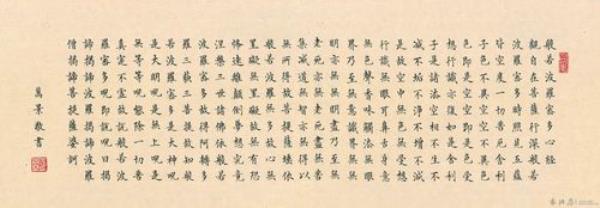 般若波羅蜜多心經
觀自在菩薩行深般若
波羅蜜多時照見五蘊
皆空度一切苦厄舍利
子色不異空空不異色
色即是空空即是色受
想行識亦復如是舍利
子是諸法空相不生不
滅不垢不淨不增不減
是故空中無色無受想
行識無眼耳鼻舌身意
無色聲香味觸法無眼
界乃至無意識界無無
明亦無無明盡乃至無
老死亦無老死盡無苦
集滅道無智亦無得以
無所得故菩提薩埵依
般若波羅蜜多故心無
罣礙無罣礙故無有恐
怖遠離顛倒夢想究竟
涅槃三世諸佛依般若
波羅蜜多故得阿耨多
羅三藐三菩提故知般
若波羅蜜多是大神呪
是大明呪是無上呪是
無等等呪能除一切苦
真實不虛故說般若波
羅蜜多呪即說呪曰揭
諦揭諦波羅揭諦波羅
僧揭諦菩提薩婆訶
萬景敬書